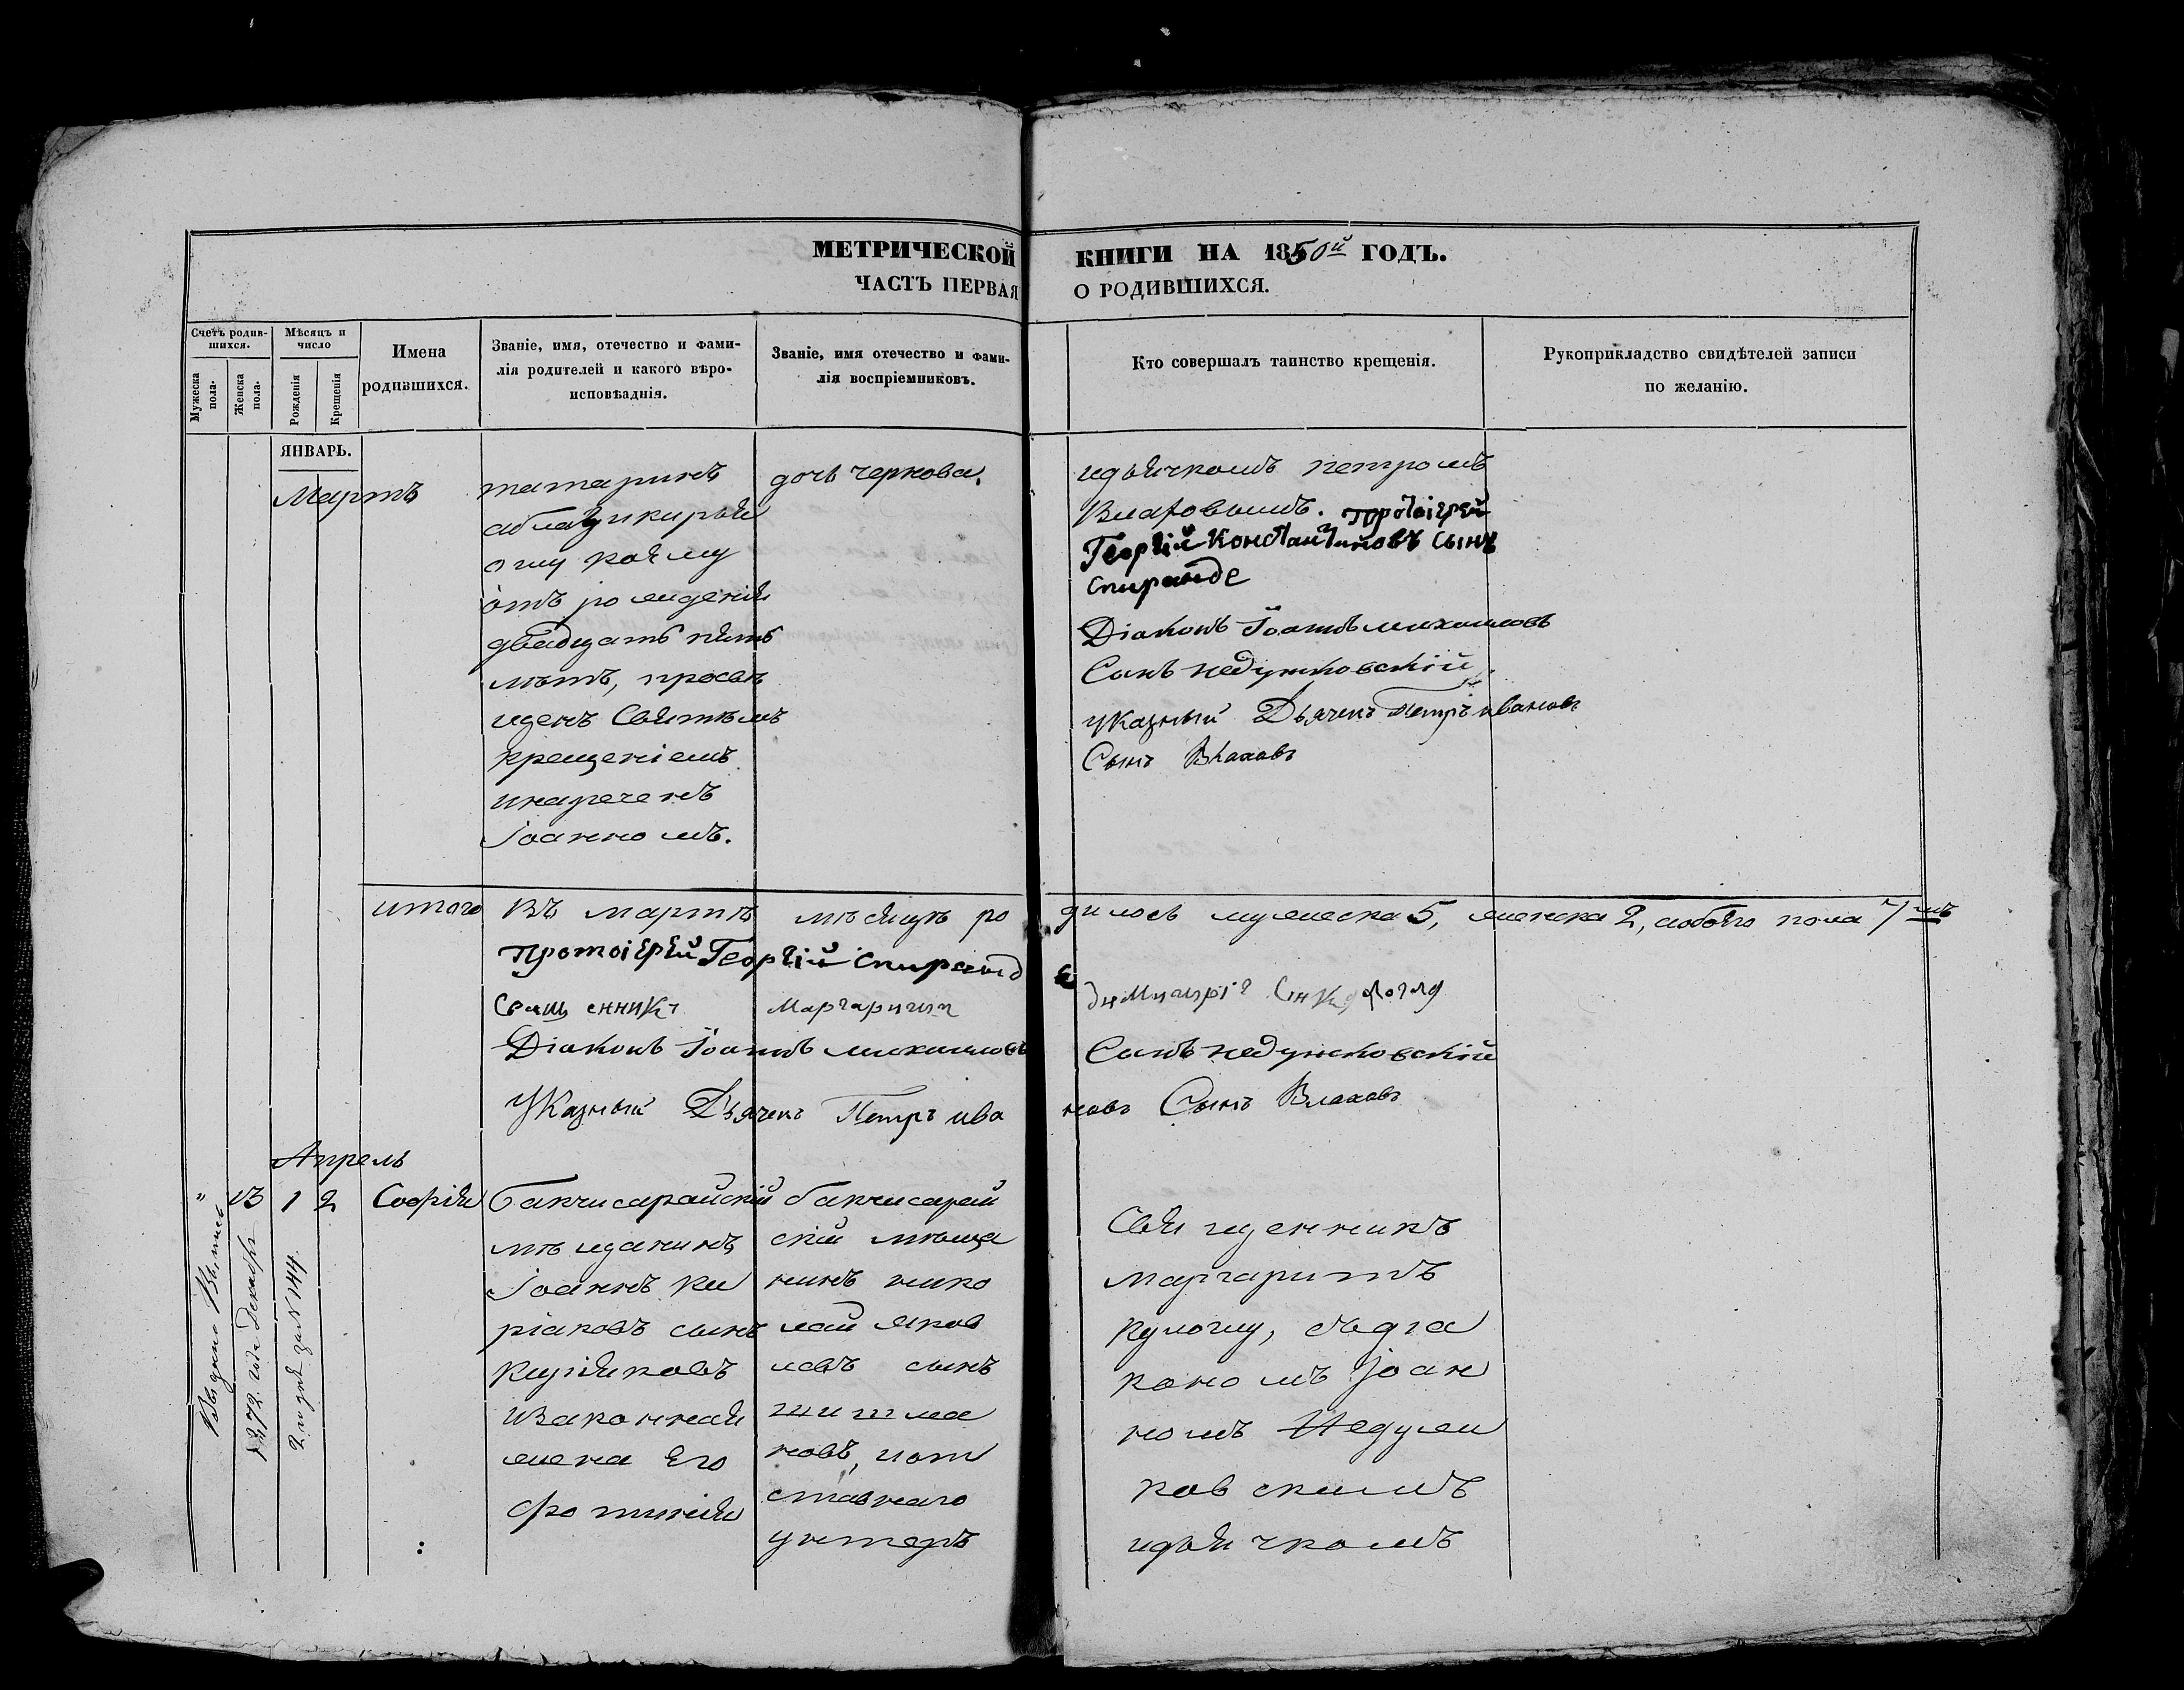 МЕТРИЧЕСКОЙ КНИГИ НА 1850й ГОДЪ.
ЧАСТЬ ПЕРВАЯ О РОДИВШИХСЯ.
Счетъ родив-
шихся.
Мужеска
пола.
Женска
пола.
Мѣсяцъ и
число
Рожденія
Крещенія
Имена
родившихся.
Званіе, имя, отечество и фами-
лія родителей и какого вѣро-
исповѣднія.
Званіе, имя отечество и фами-
лія воспріемниковъ.
Кто совершалъ таинство крещенія.
Рукоприкладство свидѣтелей записи
по желанію.
ЯНВАРЬ.
Мартъ
татаринъ
оглу коему
отъ рожденія
двадцать пять
лѣтъ, просвѣ
щенъ Святымъ
крещеніемъ
инареченъ
Іоанномъ.
дочь чернова.
идьячкомъ петромъ
Влаховымъ. протоіерей
Георгій Константиновъ сынъ
Спиранде
Діаконъ Іоаннъ михаиловъ
Сынъ недунжовскій
указный Дьячекъ Петръ ивановъ
Сынъ Влаховъ
итого въ мартѣ мѣсяцѣ родилось мужеска 5, женска 2, аобоего пола 7мъ
Протоіерей Георгій Спиранде
Священникъ Маргаритъ
Діаконъ Іоаннъ михаиловъ Сынъ недунжовскій
Указный Дьячекъ Петръ ивановъ Сынъ Влаховъ
Апрель
" 1 2 Софія
Бакчисарайскій
мѣщанинъ
Іоаннъ Ки
ріаковъ сынъ
изаконная
жена Его
Фотинія
бакчисарай
скій мѣща
нинъ нико
лай яков
левъ сынъ
шишма
новъ, иот
ставнаго
унтеръ
Священникъ
маргаритъ
кулоглу, съдіа
кономъ Іоан
номъ Недунж
ковскимъ
идьячкомъ
1872. года Декабря
2 дня за № 144.